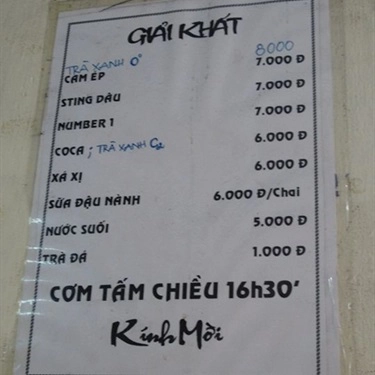 GIẢI KHÁT
TRÀ XANH 0° 8000
CAM ÉP 7.000 Đ
STING DÂU 7.000 Đ
NUMBER 1 7.000 Đ
COCA ; TRÀ XANH C2 6.000 Đ
XÁ XỊ 6.000 Đ
SỮA ĐẬU NÀNH 6.000 Đ/Chai
NƯỚC SUỐI 5.000 Đ
TRÀ ĐÁ 1.000 Đ
CƠM TẤM CHIỀU 16h30'
Kính Mời